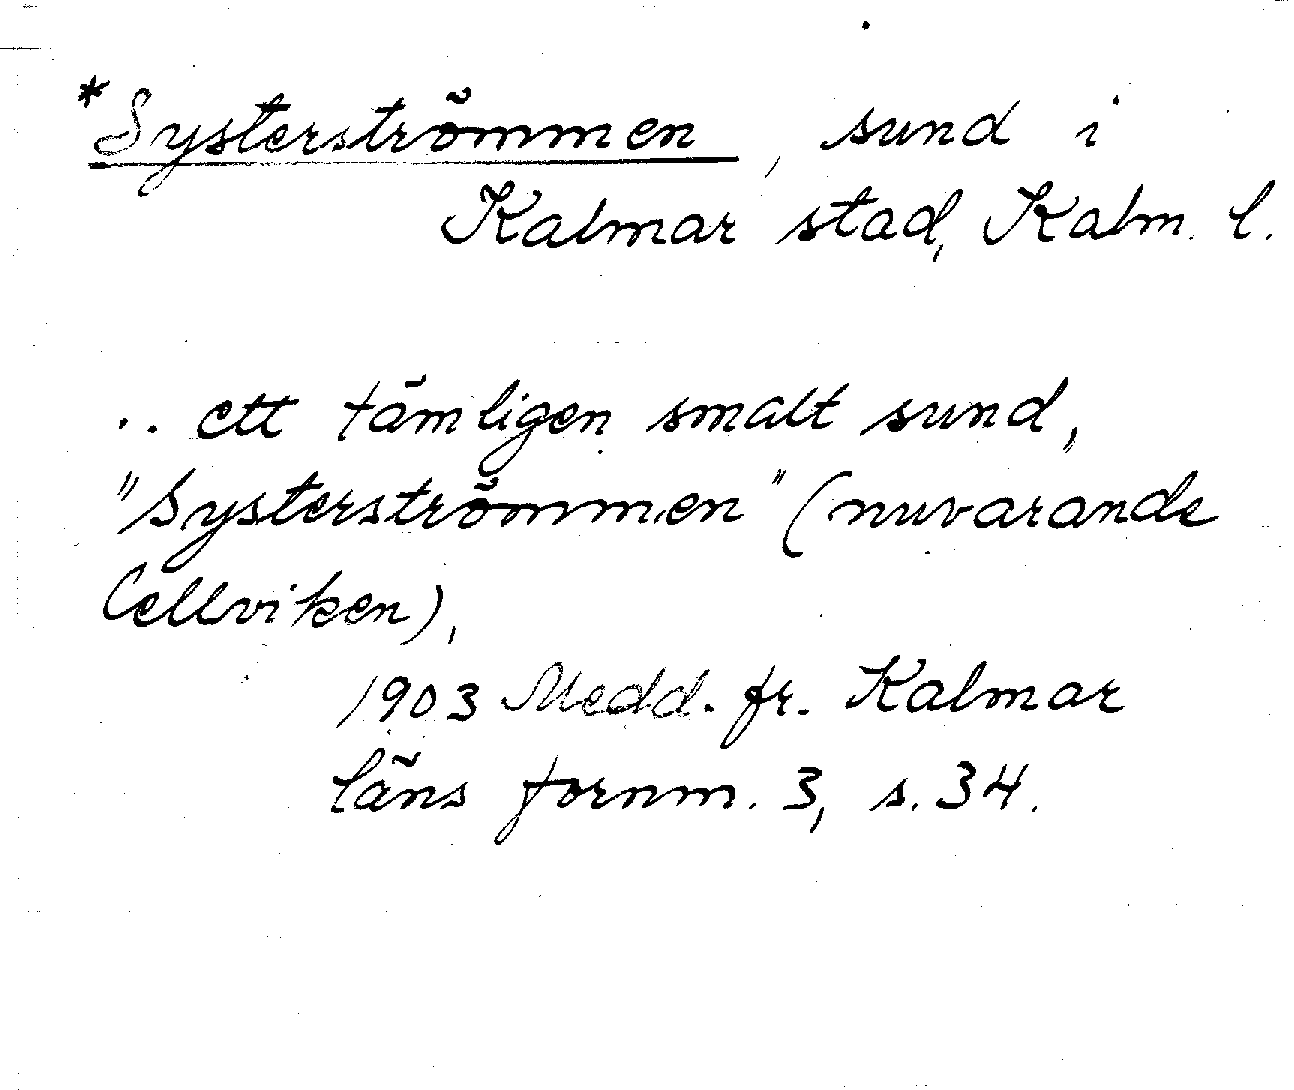 *Systerströmmen, sund i
Kalmar stad, Kalm. l.
.. ett tämligen smalt sund,
"Systerströmmen" (nuvarande
Cellviken),
1903 Medd. fr. Kalmar
läns fornm. 3, s. 34.